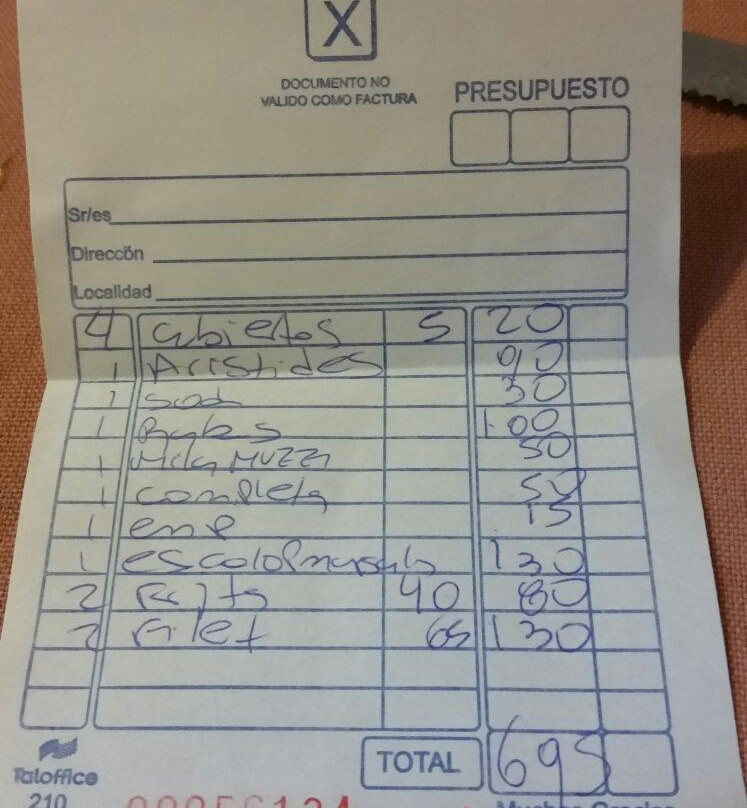 X
DOCUMENTO NO
VALIDO COMO FACTURA
PRESUPUESTO
Sr/es
Direccön
Localidad
4 Cubiertos 5 20
1 Aristides 90
1 soda 30
1 100
1 MUZZA 50
1 completa 50
1 emp 15
1 130
2 40 80
2 Filet 65 130
Taloffice
210
TOTAL 695